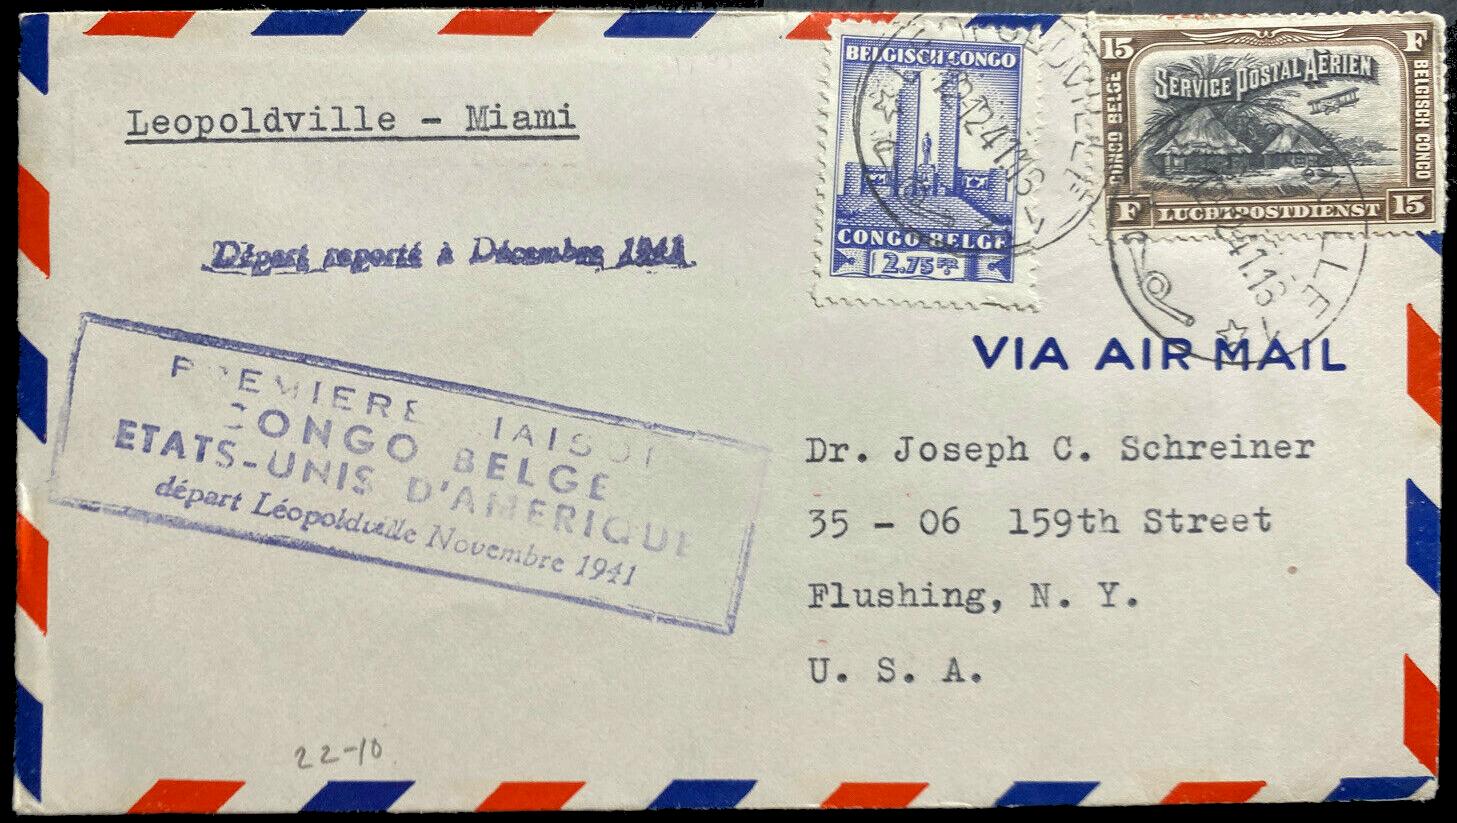 Leopoldville - Miami
Départ reporté à Décembre 1941
PREMIERE LIAISON
CONGO BELGE
ETATS-UNIS D'AMERIQUE
départ Léopoldville Novembre 1941
22-10
BELGISCH CONGO
CONGO BELGE
2.75 FR
15 F
SERVICE POSTAL AÉRIEN
CONGO BELGE
BELGISCH CONGO
F LUCHTPOSTDIENST 15
LEOPOLDVILLE
VIA AIR MAIL
Dr. Joseph C. Schreiner
35 - 06 159th Street
Flushing, N. Y.
U. S. A.